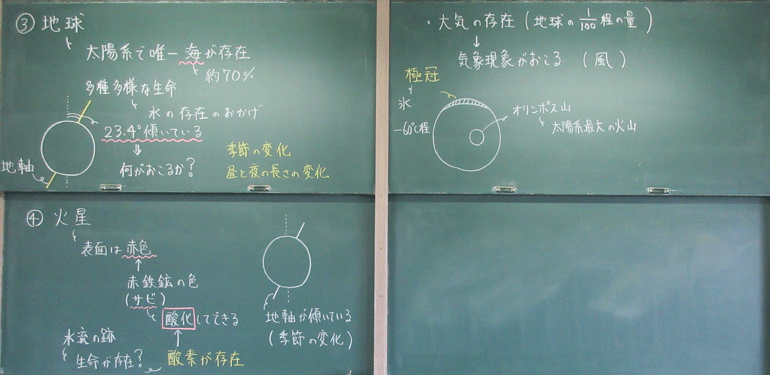 ③ 地球
太陽系で唯一 海が存在
約70%
多種多様な生命
水の存在のおかげ
23.4°傾いている
地軸
何がおこるか?
季節の変化
昼と夜の長さの変化
④ 火星
表面は赤色
赤鉄鉱の色
(サビ)
酸化してできる
水流の跡
生命が存在?
酸素が存在
地軸が傾いている
(季節の変化)
・大気の存在(地球の1/100程の量)
気象現象がおこる (風)
極冠
氷
-60℃程
オリンポス山
太陽系最大の火山